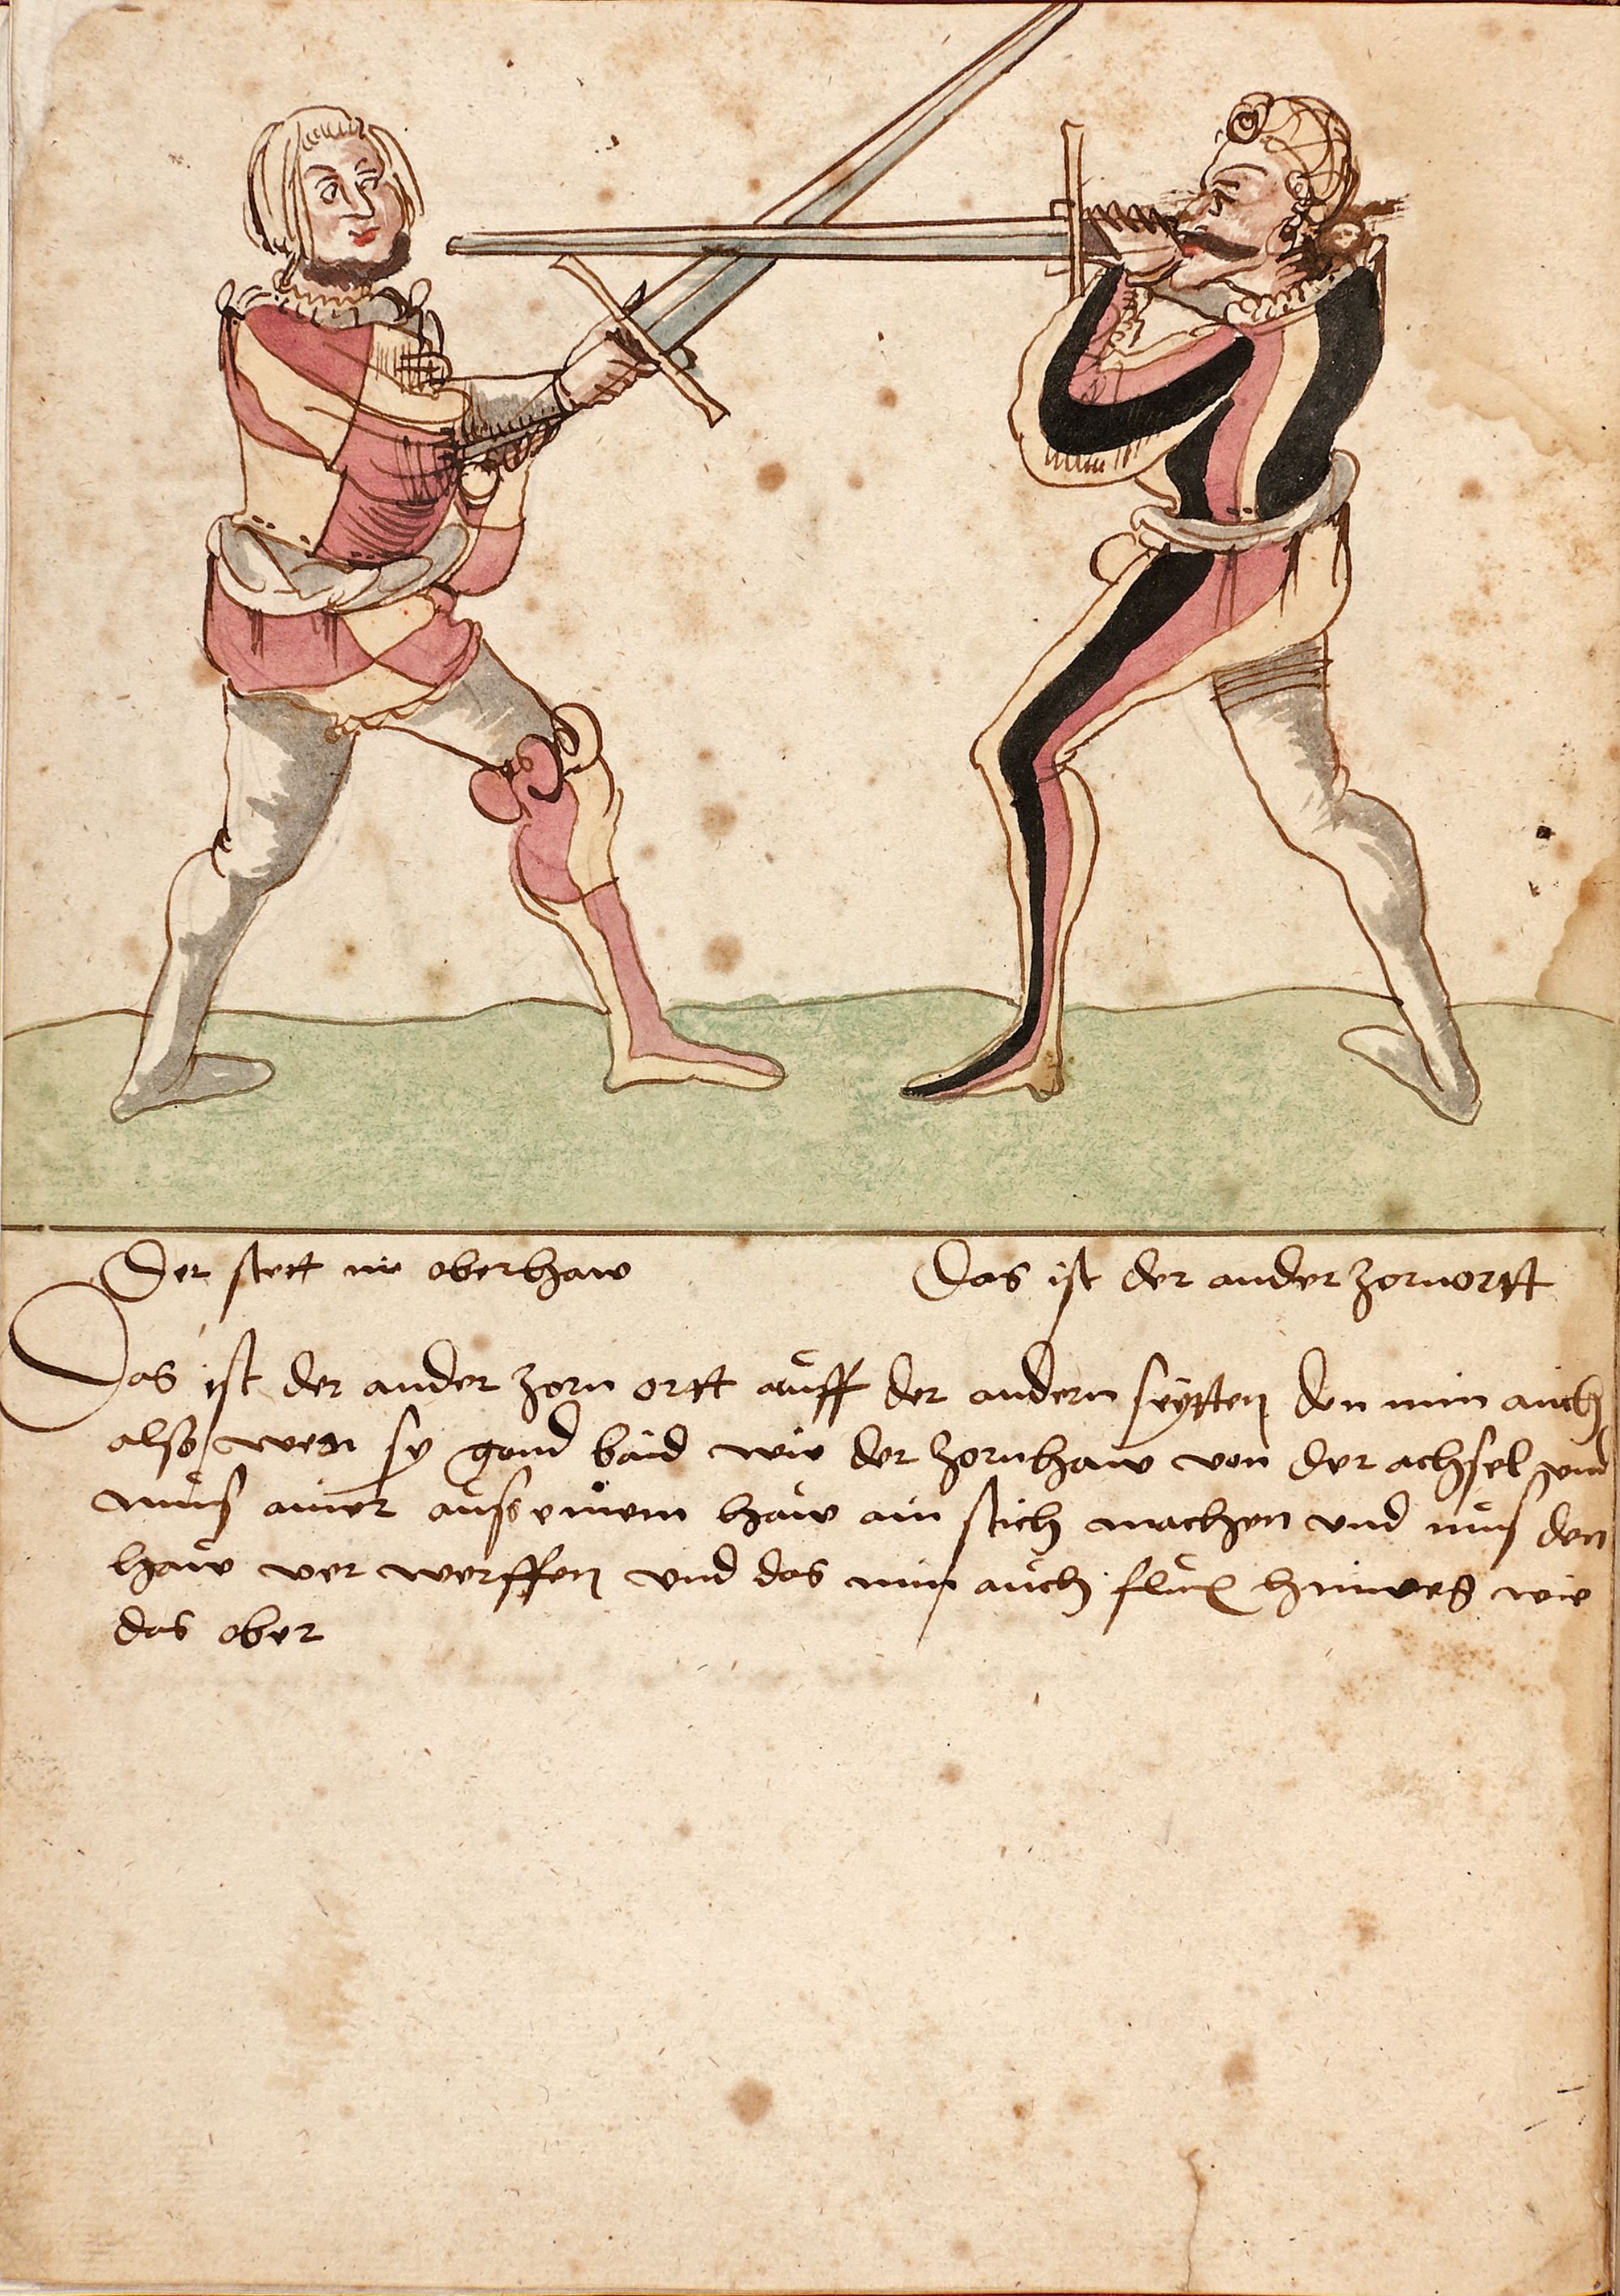 Der stett im oberhaw
Das ist der ander zornortt
Das ist der ander zorn ortt auff der andern seÿtten den nim auch
also wen sy gand baid wie der zornhaw von der achsel vnd
muss ainer auss einem haw ain stich machen vnd muss den
haw ver werffen vnd das nim auch flux hinweg wie
das ober